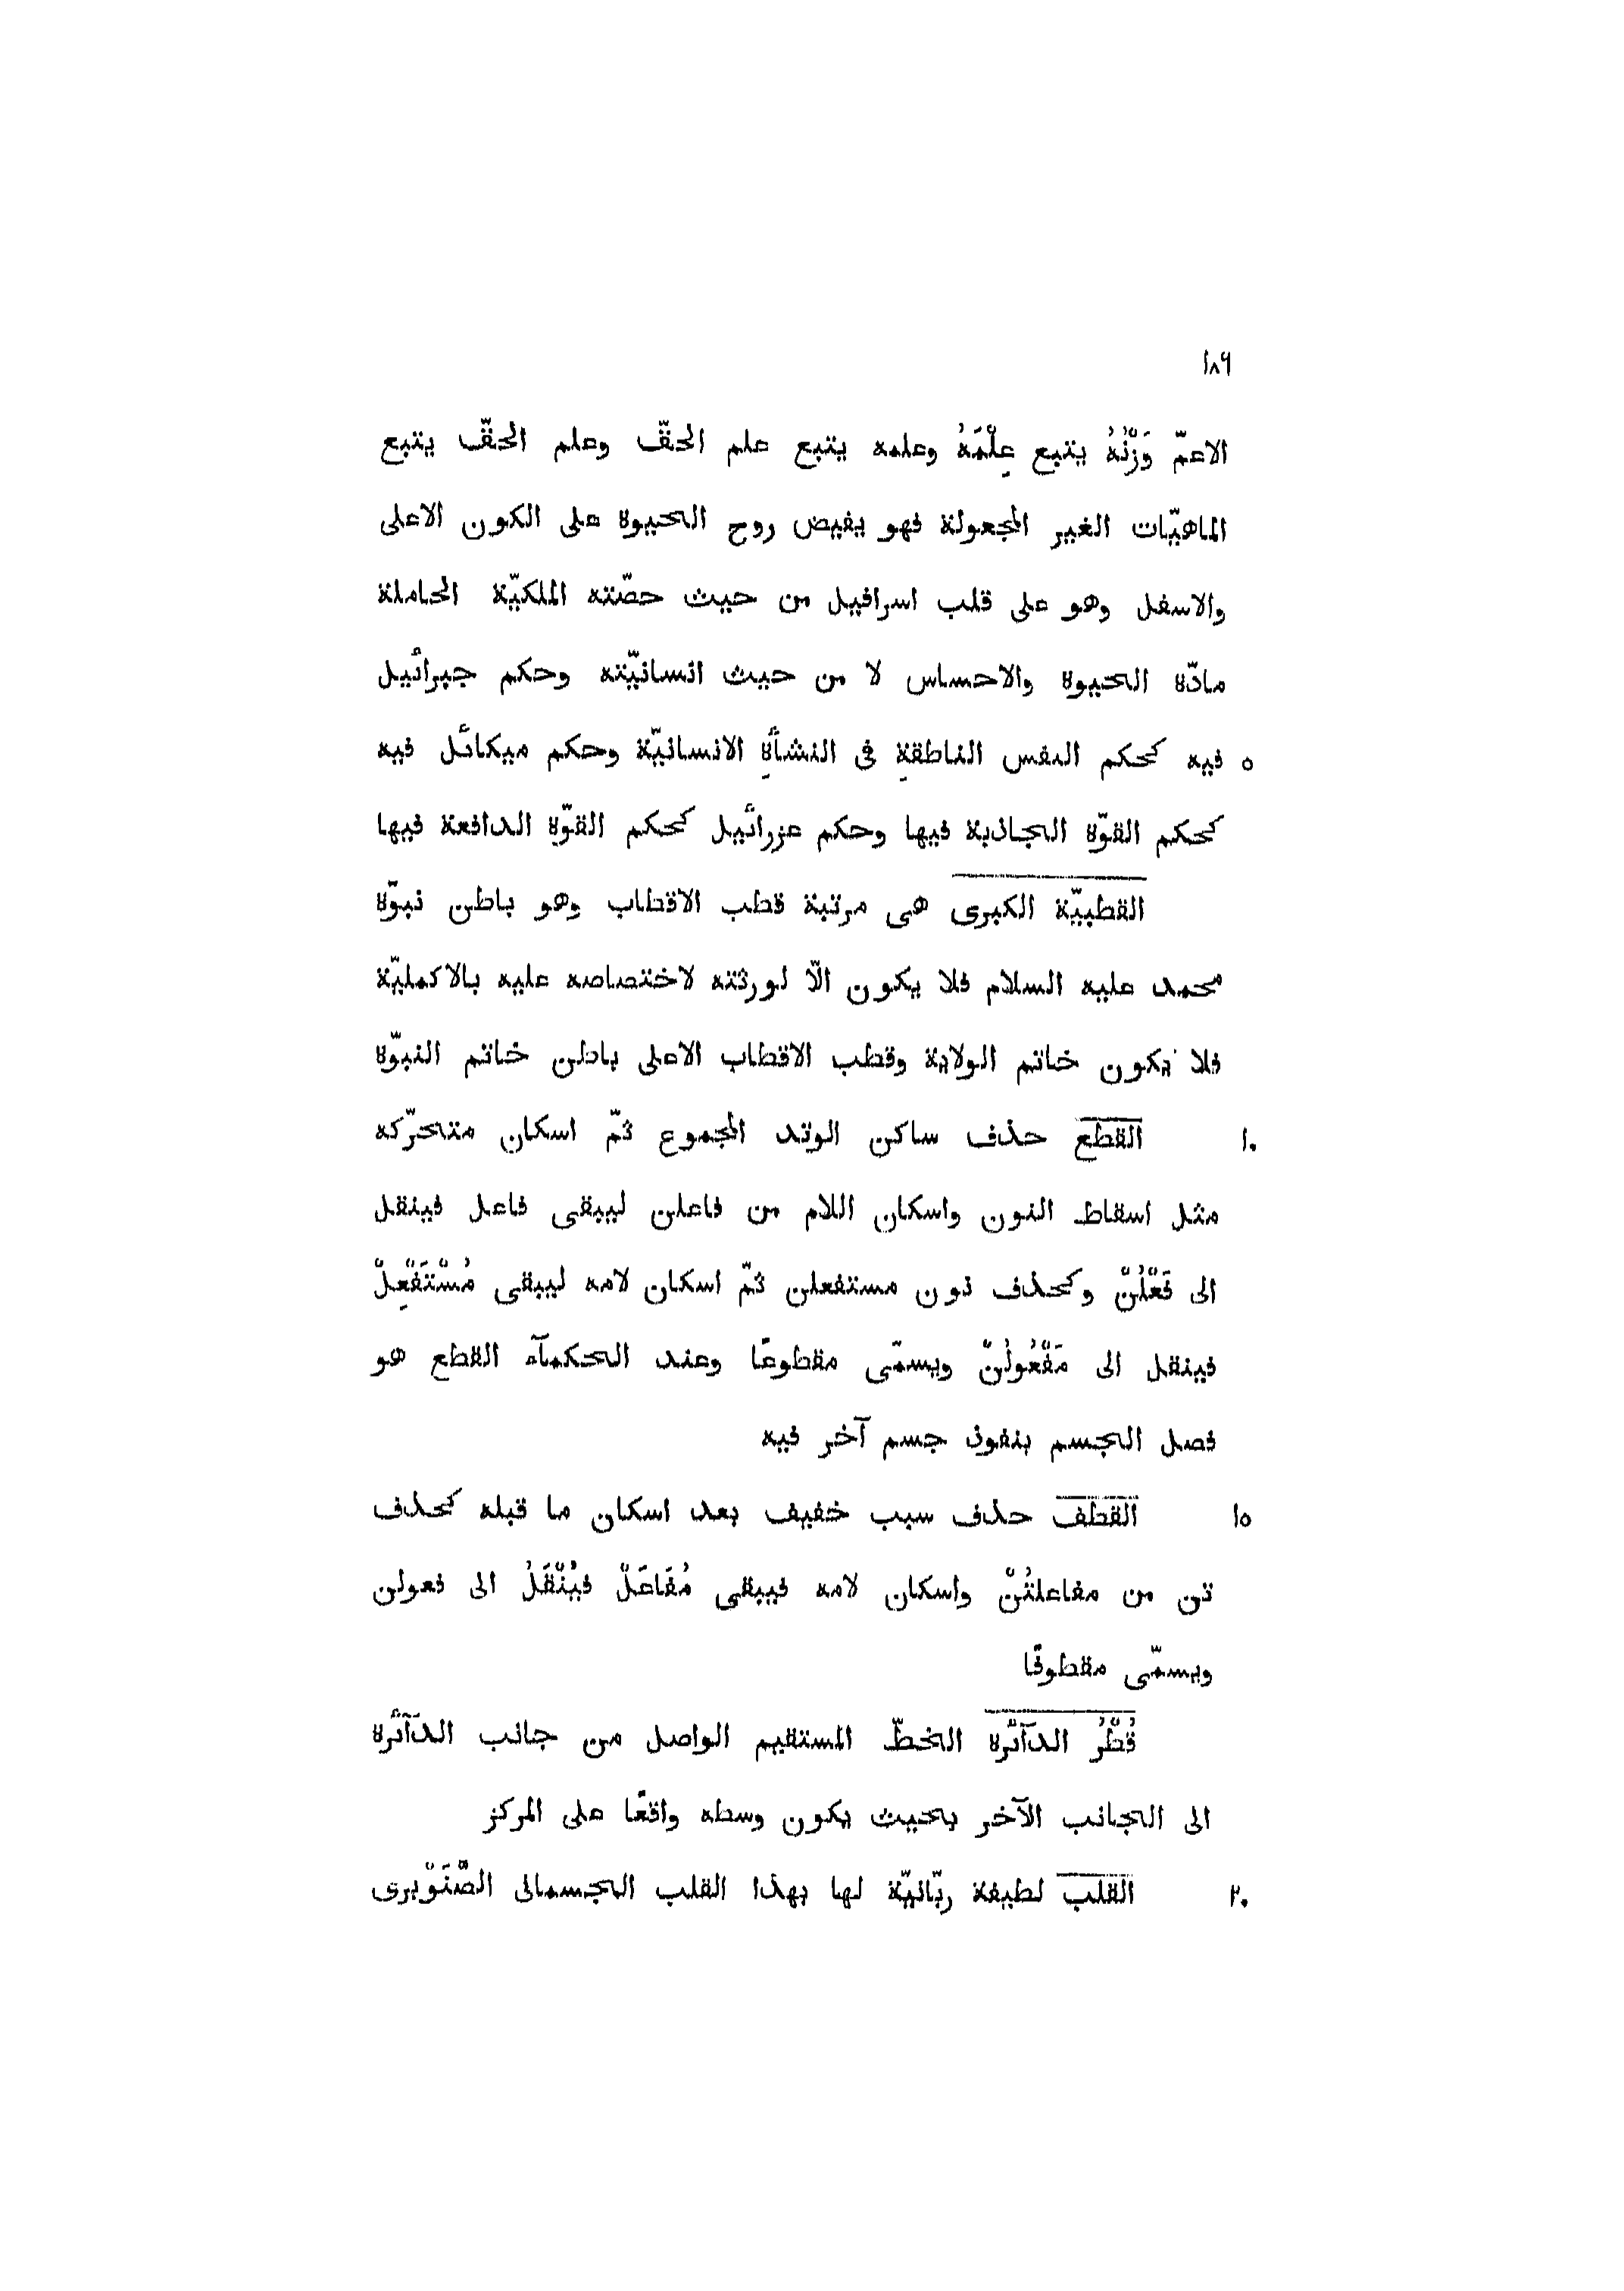 ١٨٦
الاعمّ وَزْنُهُ يتبع عِلْمَهُ وعلمه يتبع علم الحقّ وعلم الحقّ يتبع
الماهيّات الغير المجعولة فهو يفيض روح الحيوة على الكون الاعلى
والاسفل وهو على قلب اسرافيل من حيث حصّته الملكيّة الحاملة
مادّة الحيوة والاحساس لا من حيث انسانيّته وحكم جبرائيل
٥ فيه كحكم النفس الناطقةِ فى النشأةِ الانسانيّة وحكم ميكائل فيه
كحكم القوّة الجاذبة فيها وحكم عزرائيل كحكم القوّة الدافعة فيها
القطبيّة الكبرى هى مرتبة قطب الاقطاب وهو باطن نبوّة
محمد عليه السلام فلا يكون الّا لورثته لاختصاصه عليه بالاكمليّة
فلا يكون خاتم الولاية وقطب الاقطاب الاعلى باطن خاتم النبوّة
١٠ القطع حذف ساكن الوتد المجموع ثمّ اسكان متحرّكه
مثل اسقاط النون واسكان اللام من فاعلن ليبقى فاعل فينقل
الى فَعْلُنْ وكحذف نون مستفعلن ثمّ اسكان لامه ليبقى مُسْتَفْعِلْ
فينقل الى مَفْعُولُنْ ويسمّى مقطوعًا وعند الحكمآء القطع هو
فصل الجسم بنفوذ جسم آخر فيه
١٥ القطف حذف سبب خفيف بعد اسكان ما قبله كحذف
تن من مفاعلتُنْ واسكان لامه فيبقى مُفَاعَلْ فيُنْقَلُ الى فعولن
ويسمّى مقطوفًا
قُطْرُ الدآئرة الخطّ المستقيم الواصل من جانب الدآئرة
الى الجانب الآخر بحيث يكون وسطه واقعًا على المركز
٢٠ القلب لطيفة ربّانيّة لها بهذا القلب الجسمانى الصَّنَوْبرى